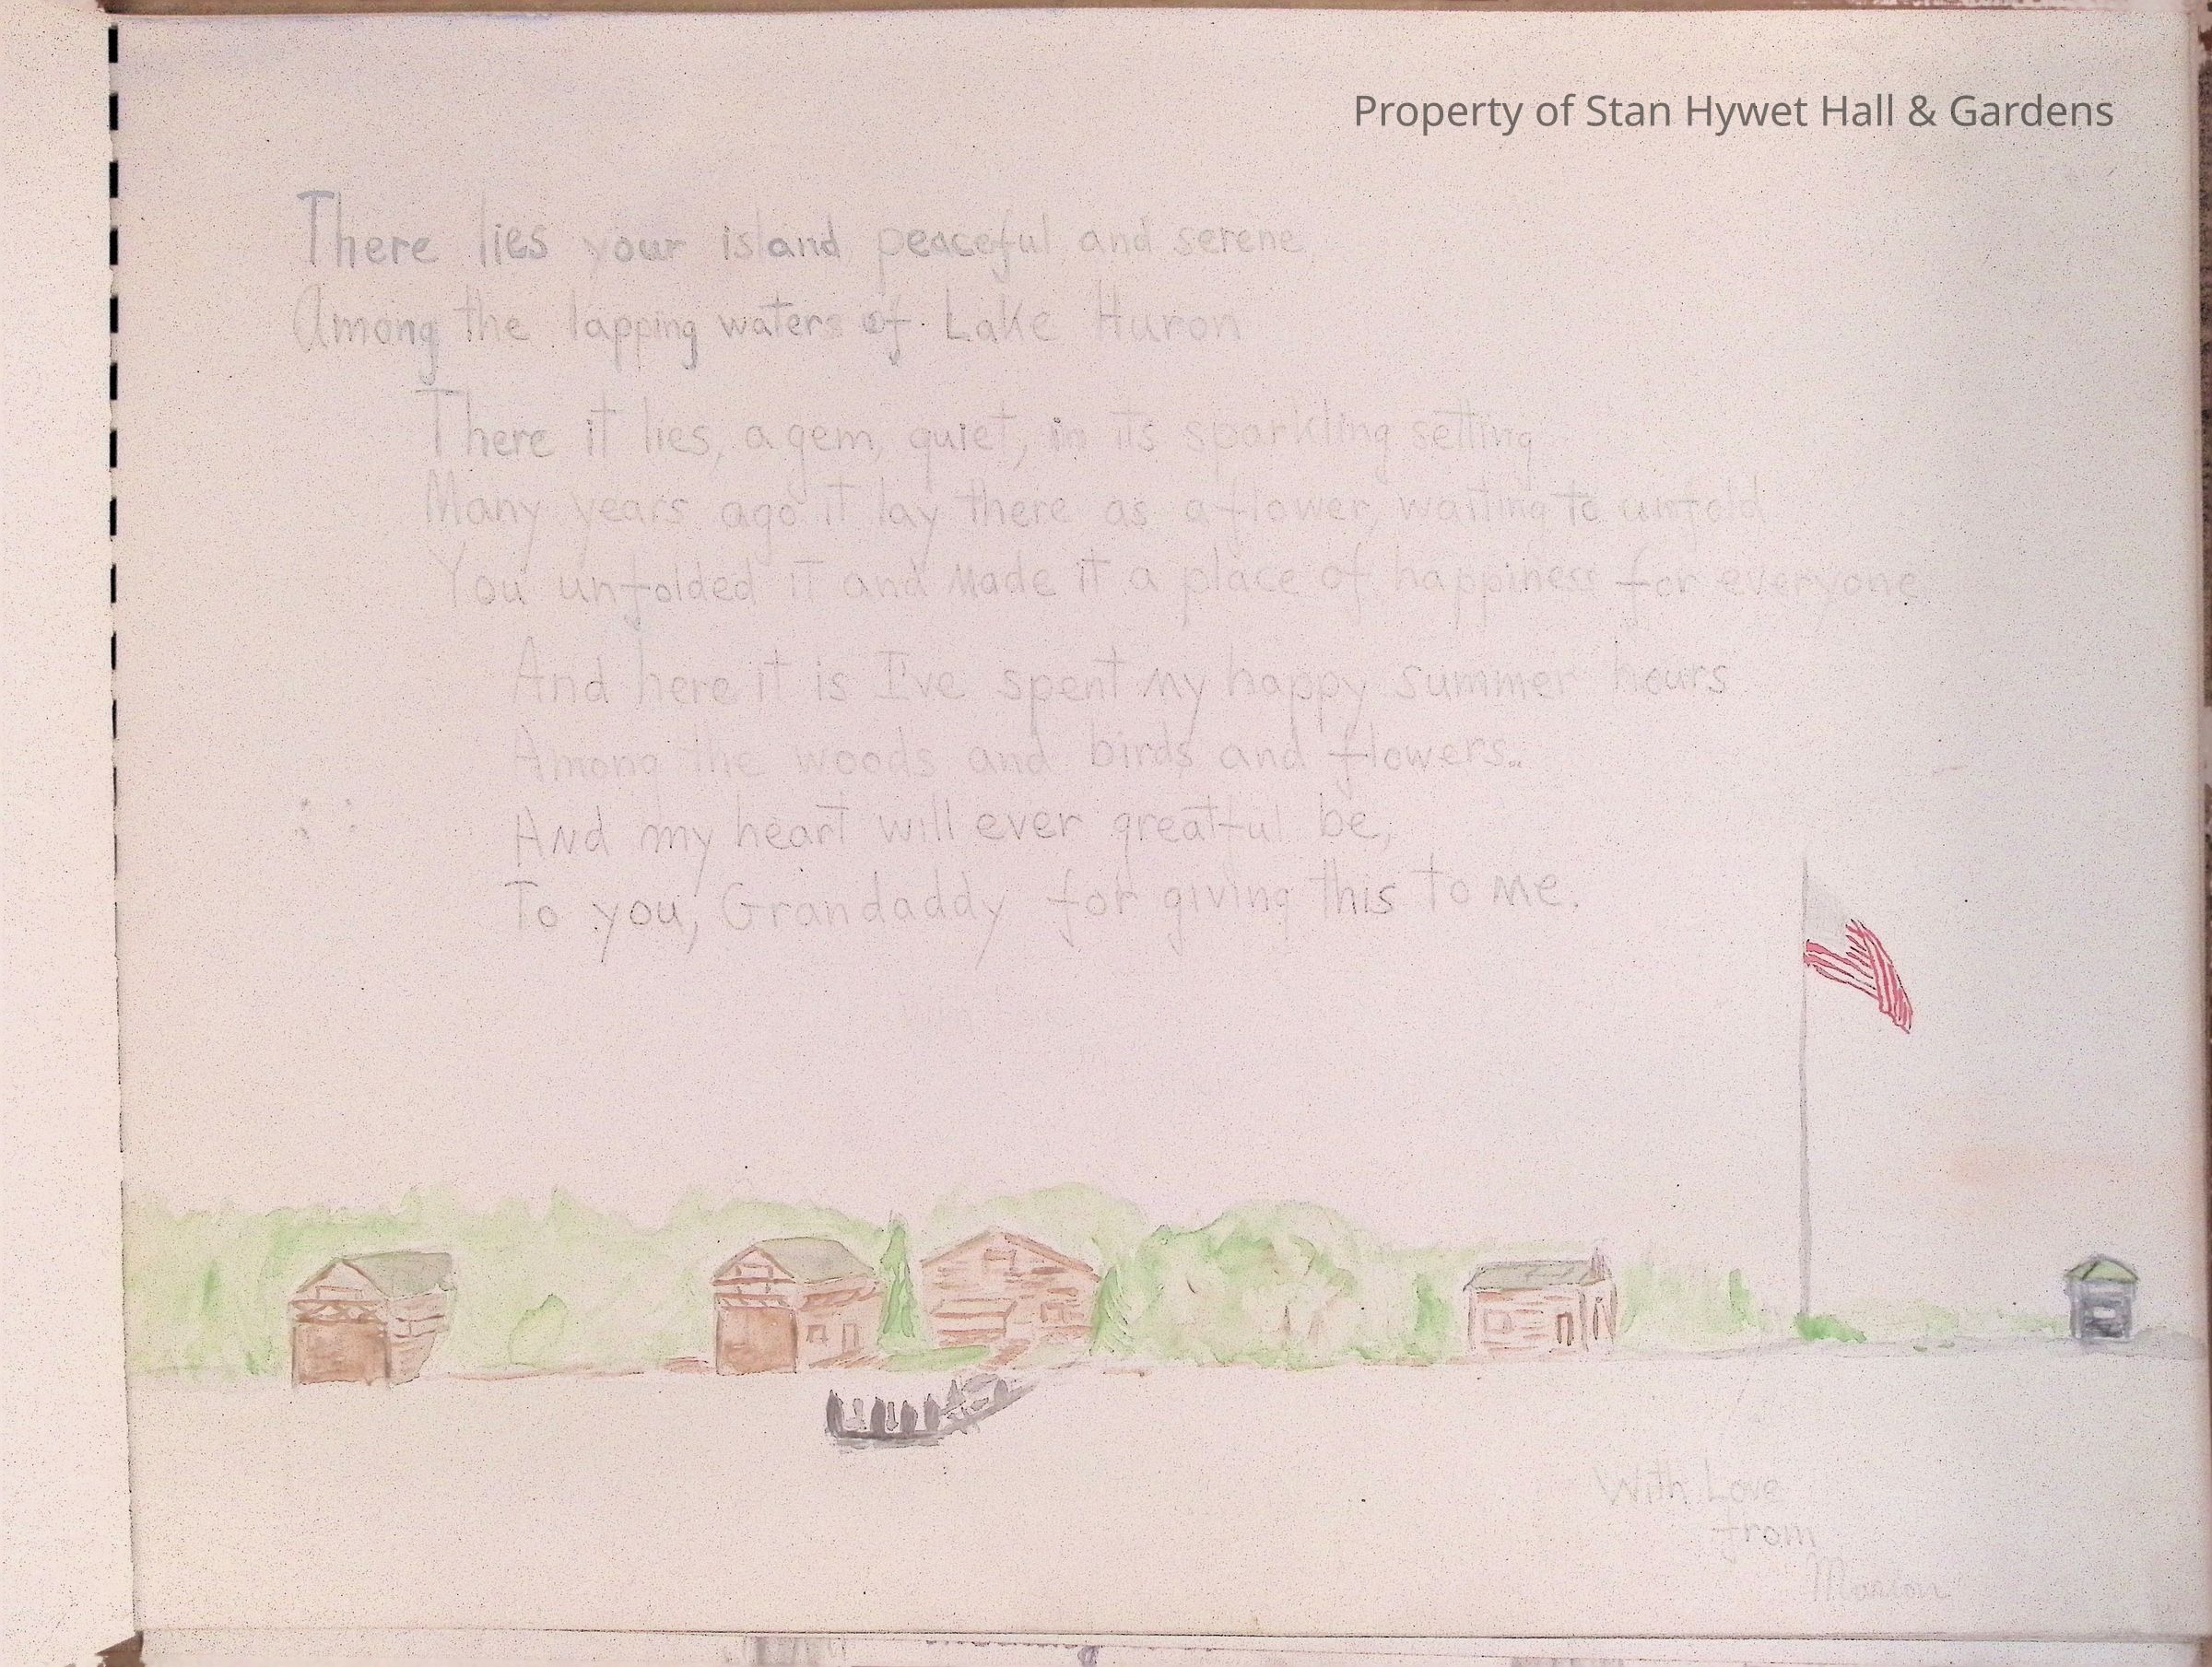 Property of Stan Hywet Hall & Gardens
There lies your island peaceful and serene
Among the lapping waters of Lake Huron
There it lies, a gem, quiet, in its sparkling setting
Many years ago it lay there as a flower, waiting to unfold
You unfolded it and made it a place of happiness for everyone
And here it is I've spent my happy summer hours
Among the woods and birds and flowers..
And my heart will ever greatful be,
To you, Grandaddy for giving this to me.
With Love
from
Marion